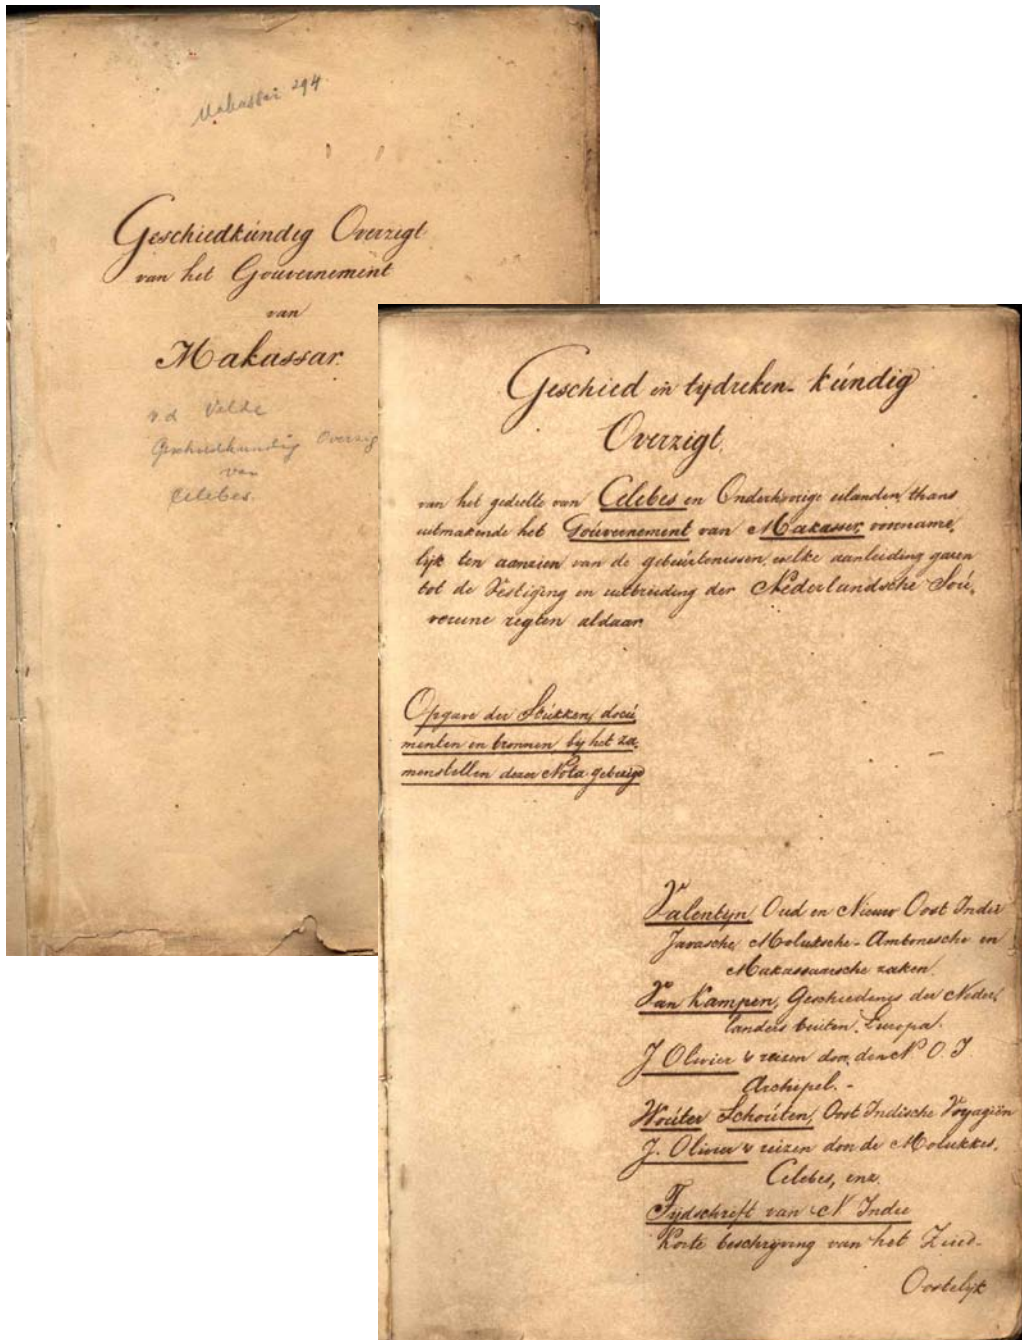 Makassar 294
Geschiedkúndig Overzigt
van het Gouvernement
van
Makassar.
v.d. Velde
Geschiedkundig Overzig
van
Celebes.
Geschied en tydreken- kúndig
Overzigt
van het gedeelte van Celebes en Onderhoorige eilanden, thans
uitmakende het Goúvernement van Makasser, voorname,
lyk ten aanzien van de gebeúrtenissen, welke aanleiding gaven
tot de Vestiging en uitbreiding der Nederlandsche Soú,
vereine regten aldaar
Opgave der Stúkken, docú
menten en bronnen, by het za,
menstellen dezer Nota gebezigd
Valentyn, Oud en Nieuw Oost Indie
Javasche, Moluksche- Ambonesche en
Makassaarsche zaken.
Van Kampen, Geschiedenis der Neder,
landers buiten Europa.
J Olivier's reizen door den N O I
Archipel. -
Woúter Schoúten, Oost Indische Voyagiën
J. Olivier's reizen door de Molukkes,
Celebes, enz.
Tydschrift van N. Indie
Korte beschryving van het Zuid-
Oostelyk